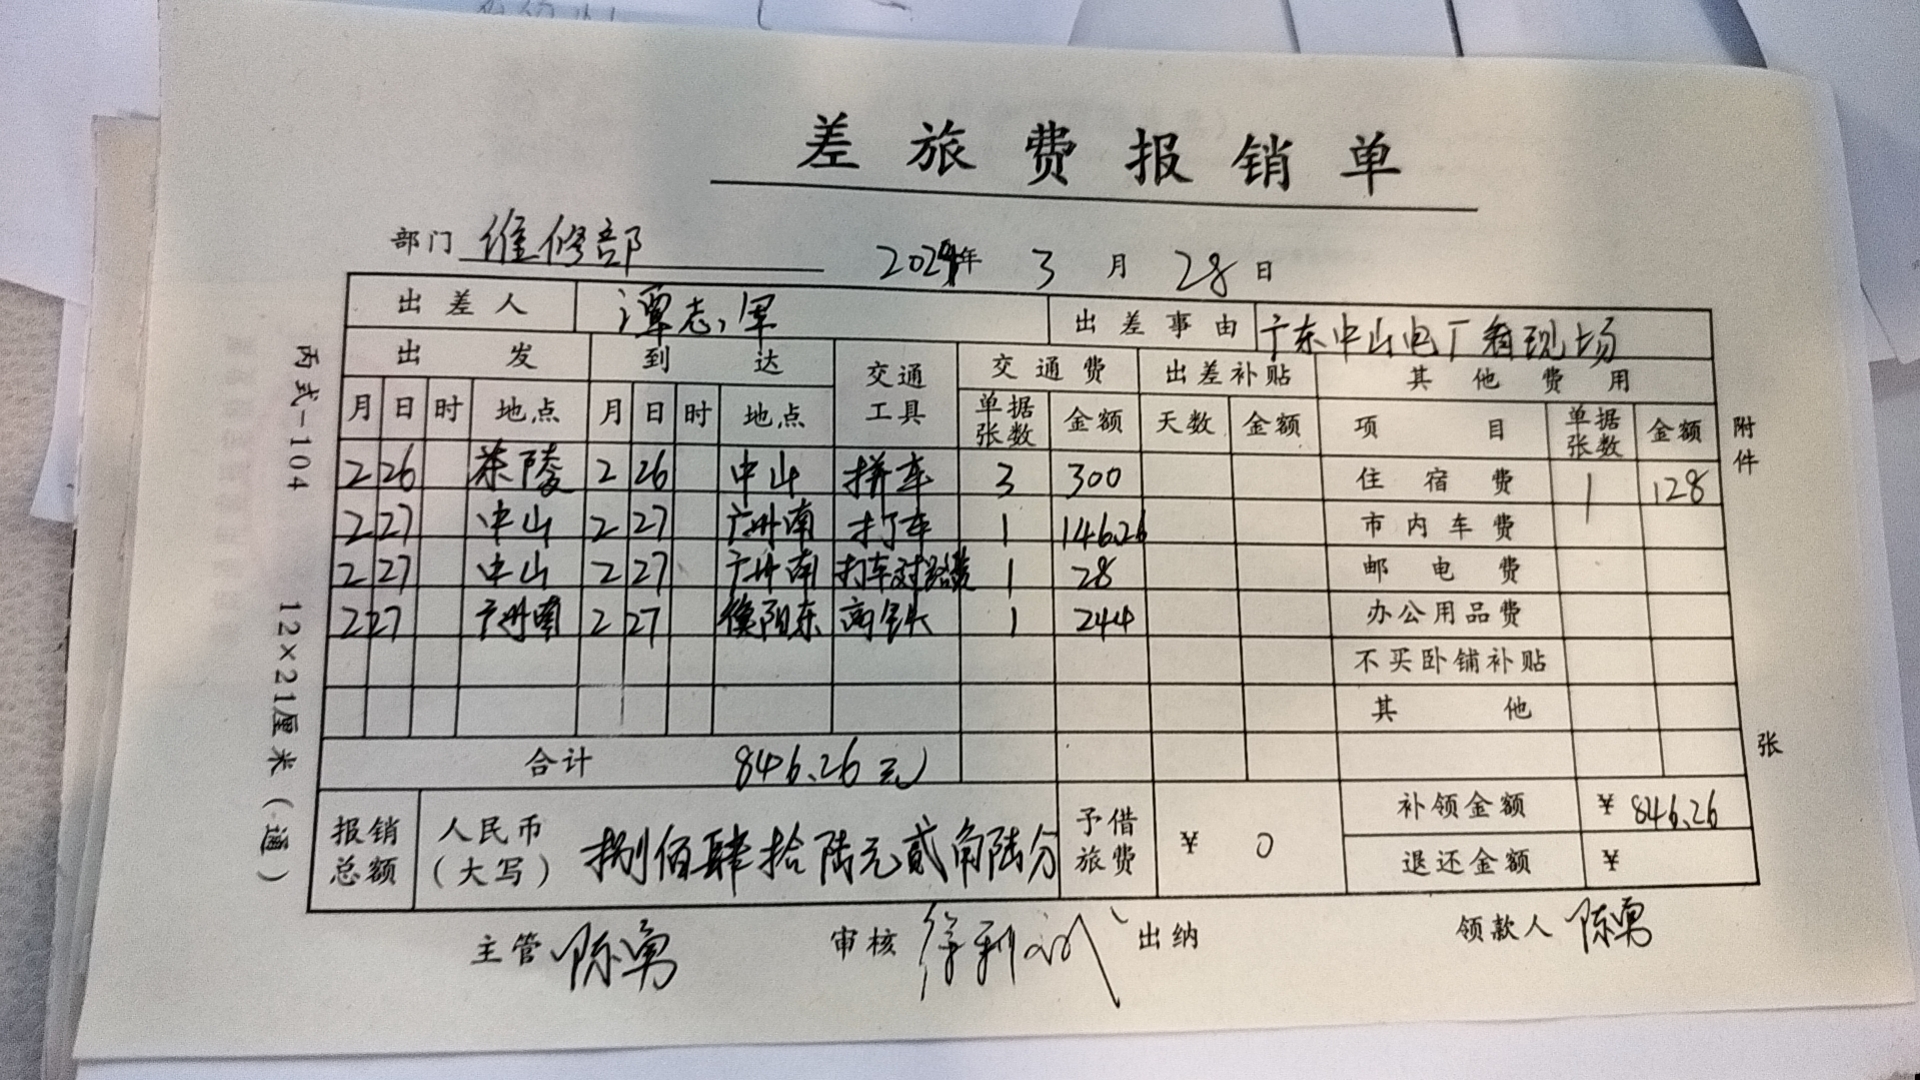 差旅费报销单
部门 维修部 2024年 3 月 28 日
出差人 谭志军 出差事由 广东中山电厂看现场
出发 到达 交通工具 交通费 出差补贴 其他费用
月 日 时 地点 月 日 时 地点 单据张数 金额 天数 金额 项目 单据张数 金额
2 26 茶陵 2 26 中山 拼车 3 300 住宿费 1 128
2 27 中山 2 27 广州南 打车 1 146.26 市内车费
2 27 中山 2 27 广州南 打车 1 28 邮电费
2 27 广州南 2 27 衡阳东 高铁 1 244 办公用品费
不买卧铺补贴
其他
合计 846.26元
报销总额 人民币(大写) 捌佰肆拾陆元贰角陆分 予借旅费 ¥ 0 补领金额 ¥ 846.26
退还金额 ¥
主管 陈勇 审核 出纳 领款人 陈勇
丙式-104 12×21厘米(通)
附件 张